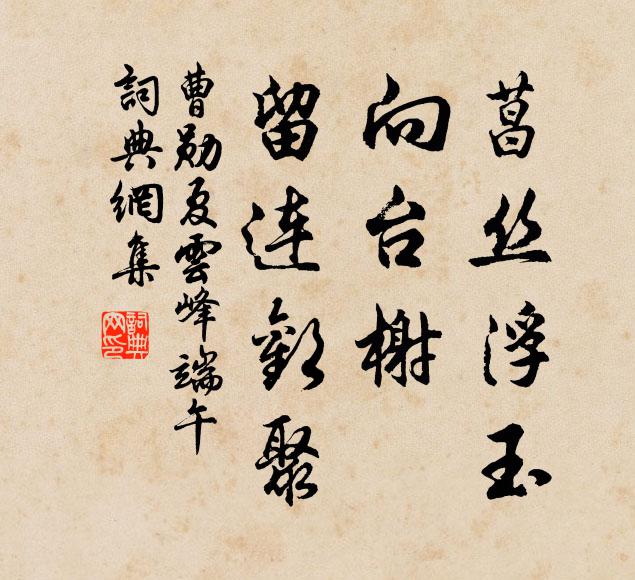 菖丝浮玉
向台榭
留连歡聚
曹勛夏雲峰端午
詞典網集
詞典網印